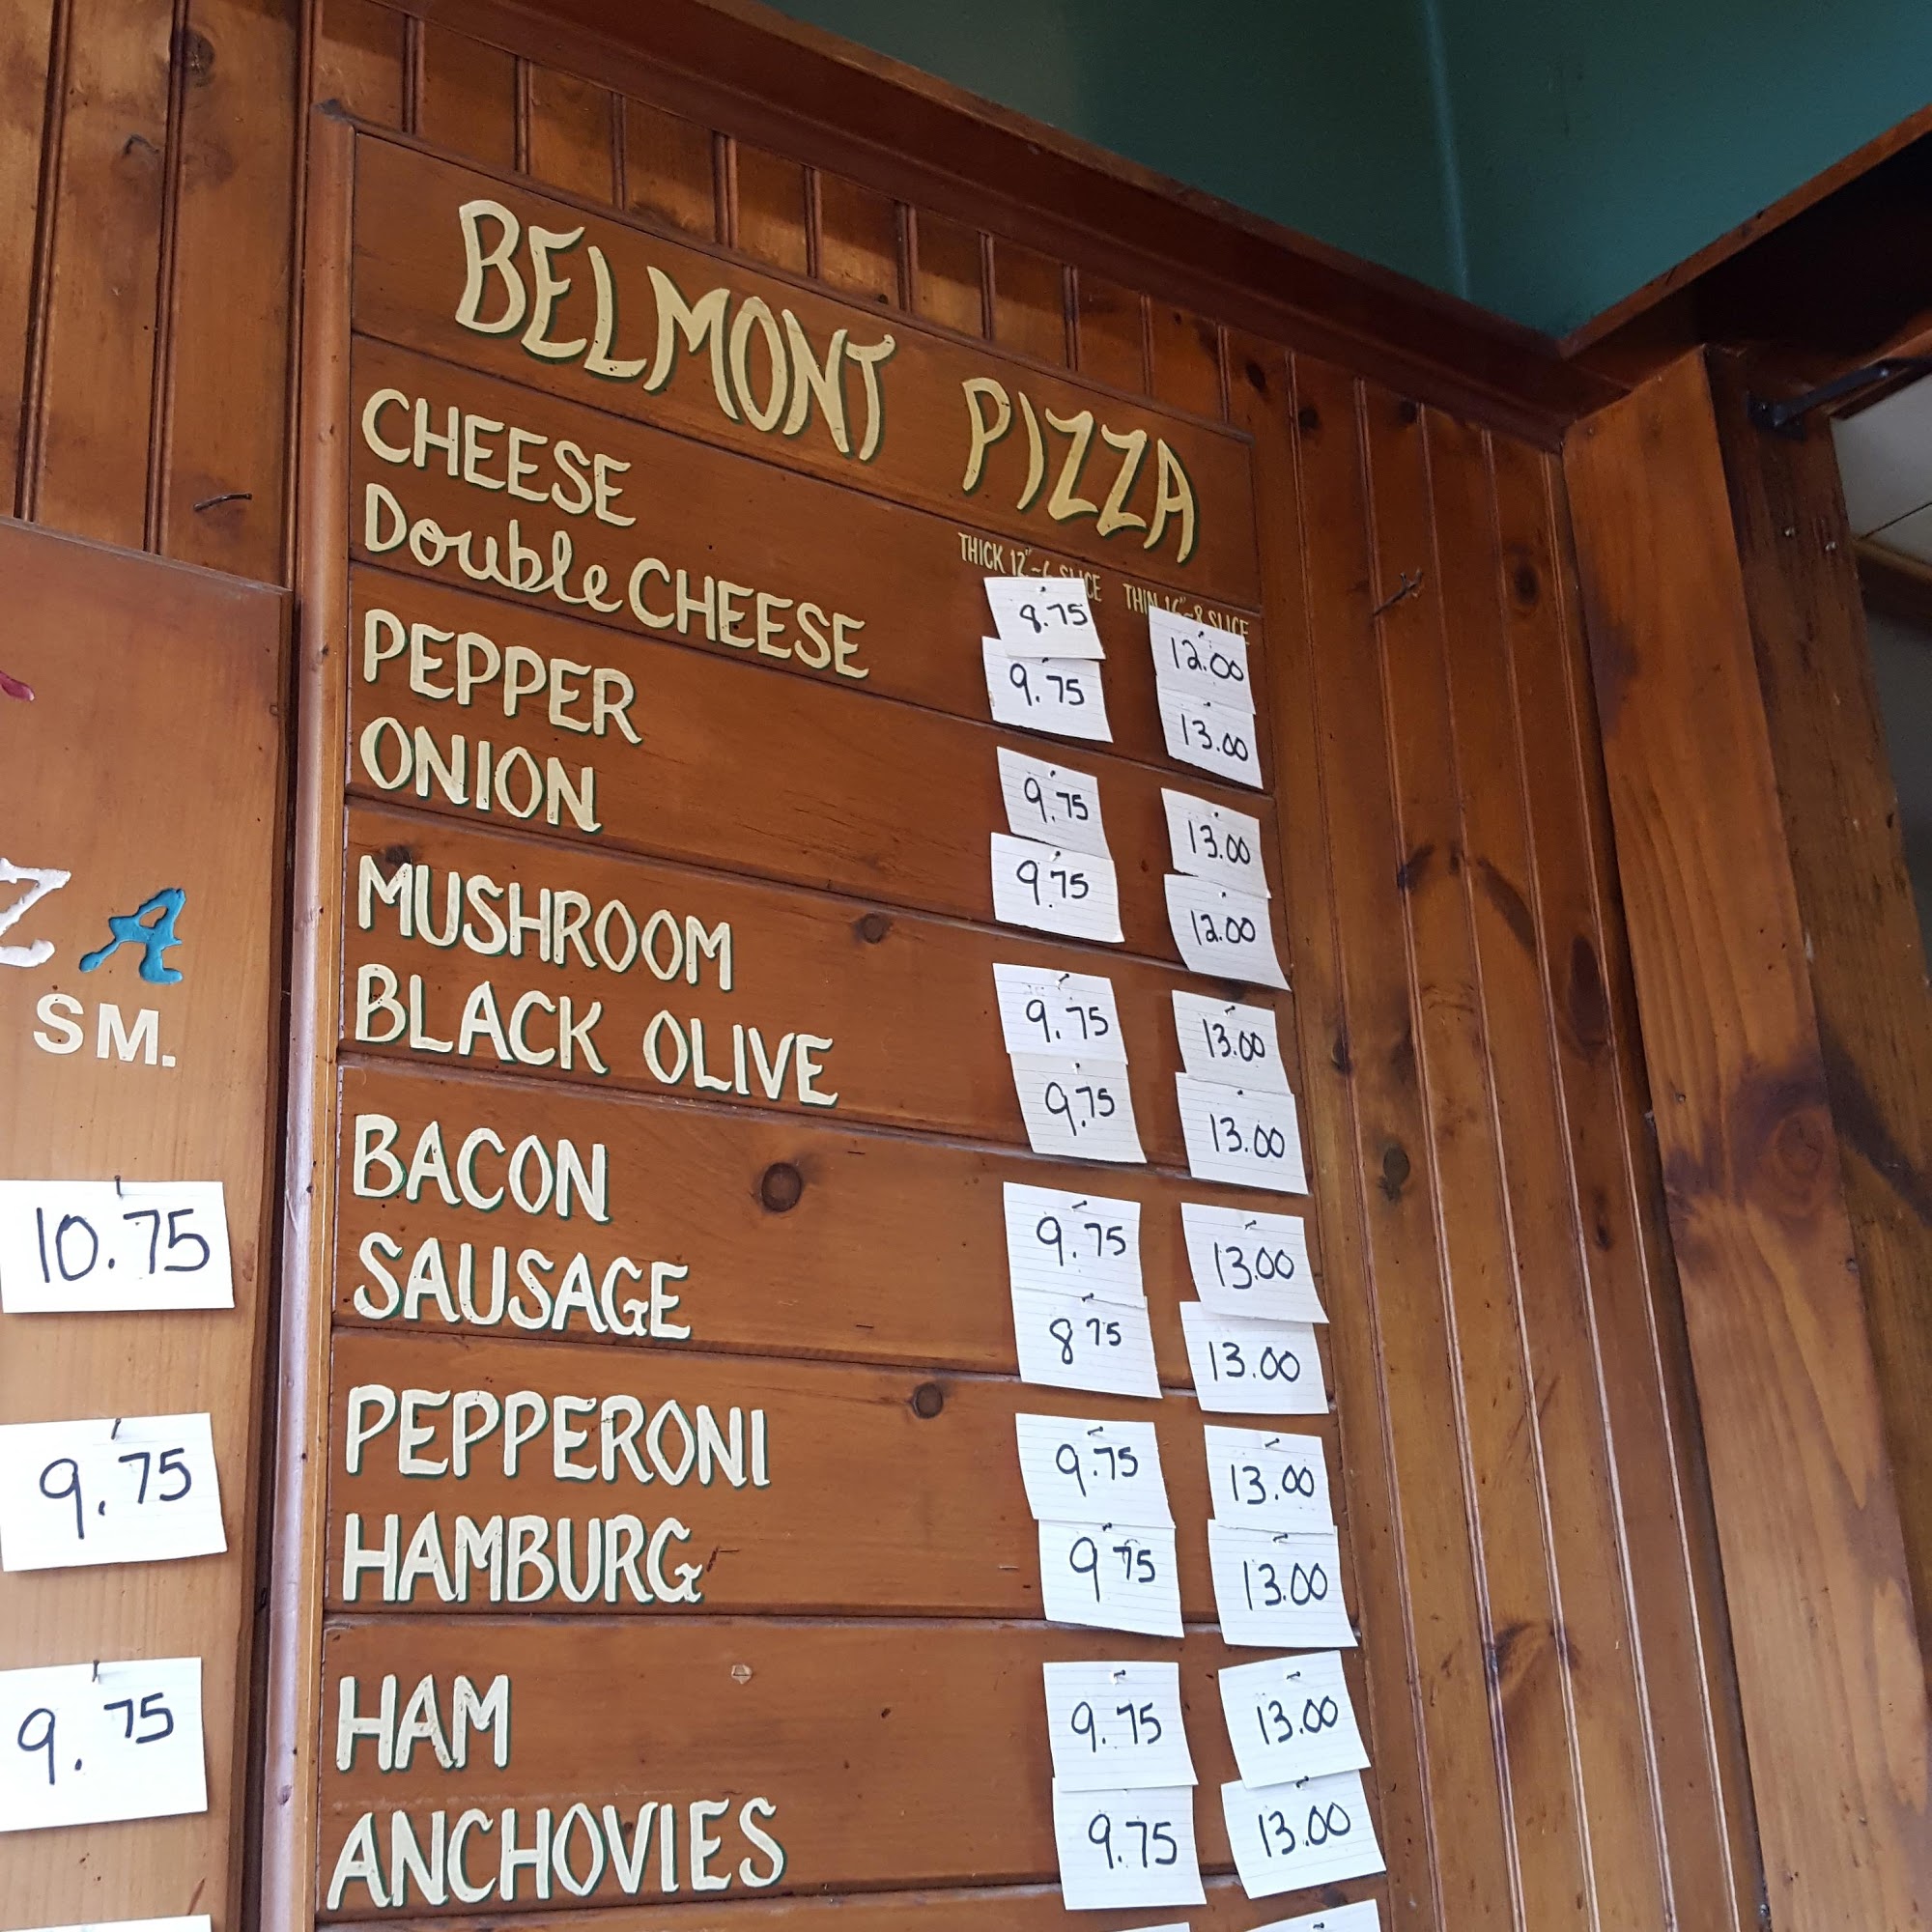 BELMONT PIZZA
THICK 12"-6 SLICE THIN 16"-8 SLICE
CHEESE 8.75 12.00
Double CHEESE 9.75 13.00
PEPPER 9.75 13.00
ONION 9.75 12.00
MUSHROOM 9.75 13.00
BLACK OLIVE 9.75 13.00
BACON 9.75 13.00
SAUSAGE 8 75 13.00
PEPPERONI 9.75 13.00
HAMBURG 9 75 13.00
HAM 9.75 13.00
ANCHOVIES 9.75 13.00
ZA
SM.
10.75
9.75
9.75